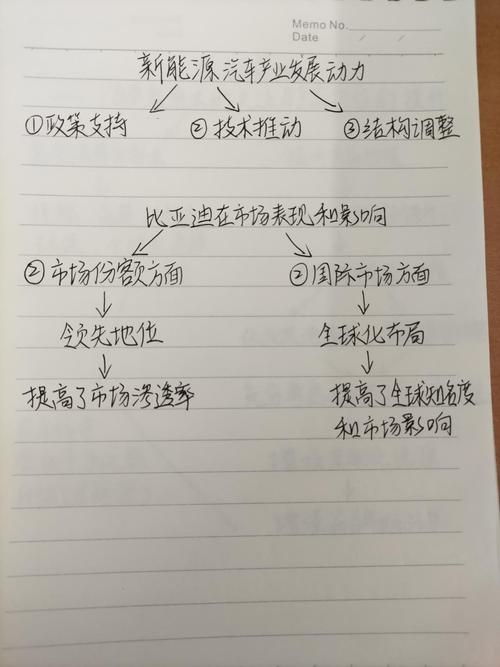 Memo No.
Date / /
新能源汽车产业发展动力
①政策支持 ②技术推动 ③结构调整
比亚迪在市场表现和影响
②市场份额方面 ②国际市场方面
领先地位 全球化布局
提高了市场渗透率 提高了全球知名度
和市场影响